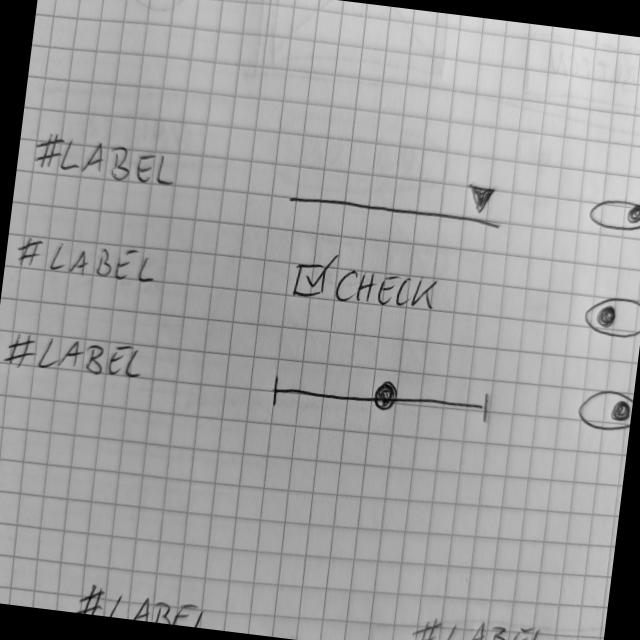 #LABEL
#LABEL
CHECK
#LABEL
#LABEL
#LABEL